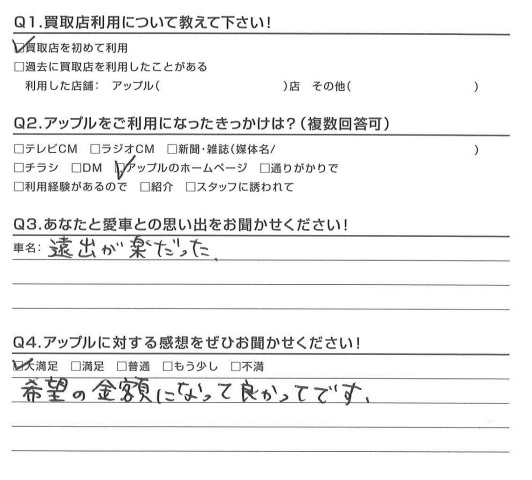 Q1.買取店利用について教えて下さい!
☑買取店を初めて利用
□過去に買取店を利用したことがある
利用した店舗: アップル( )店 その他( )
Q2.アップルをご利用になったきっかけは?(複数回答可)
□テレビCM □ラジオCM □新聞・雑誌(媒体名/ )
□チラシ □DM ☑アップルのホームページ □通りがかりで
□利用経験があるので □紹介 □スタッフに誘われて
Q3.あなたと愛車との思い出をお聞かせください!
車名: 遠出が楽だった、
Q4.アップルに対する感想をぜひお聞かせください!
☑大満足 □満足 □普通 □もう少し □不満
希望の金額になって良かってです、